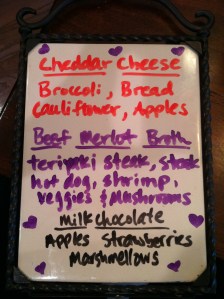 Cheddar Cheese
Broccoli, Bread
Cauliflower, Apples
Beef Merlot Broth
teriyaki steak, steak
hot dog, shrimp,
veggies & Mushrooms
Milk chocolate
Apples Strawberries
Marshmellows